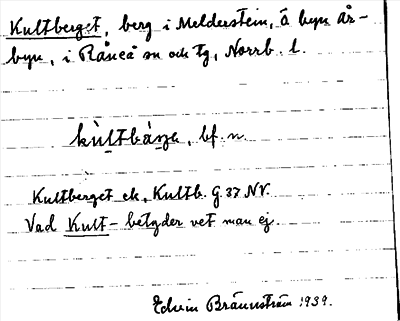 Kultberget, berg i Melderstein, å byn år-
byn, i Råneå sn och tg, Norrb. l.
kùltbásʒe, bf. n.
Kultberget ek. Kultb. G. 37 NV.
Vad Kult- betyder vet man ej.
Edvin Brännström 1939.